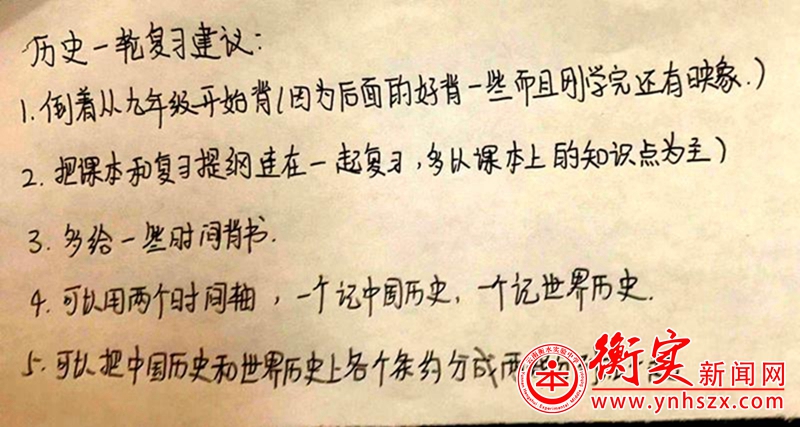 历史一轮复习建议：
1.倒着从九年级开始背(因为后面的好背一些而且刚学完还有映象.)
2.把课本和复习提纲连在一起复习,多以课本上的知识点为主)
3.多给一些时间背书.
4.可以用两个时间轴，一个记中国历史，一个记世界历史.
5.可以把中国历史和世界历史上各个条约分成两
云南衡水实验中学
衡实新闻网
www.ynhszx.com